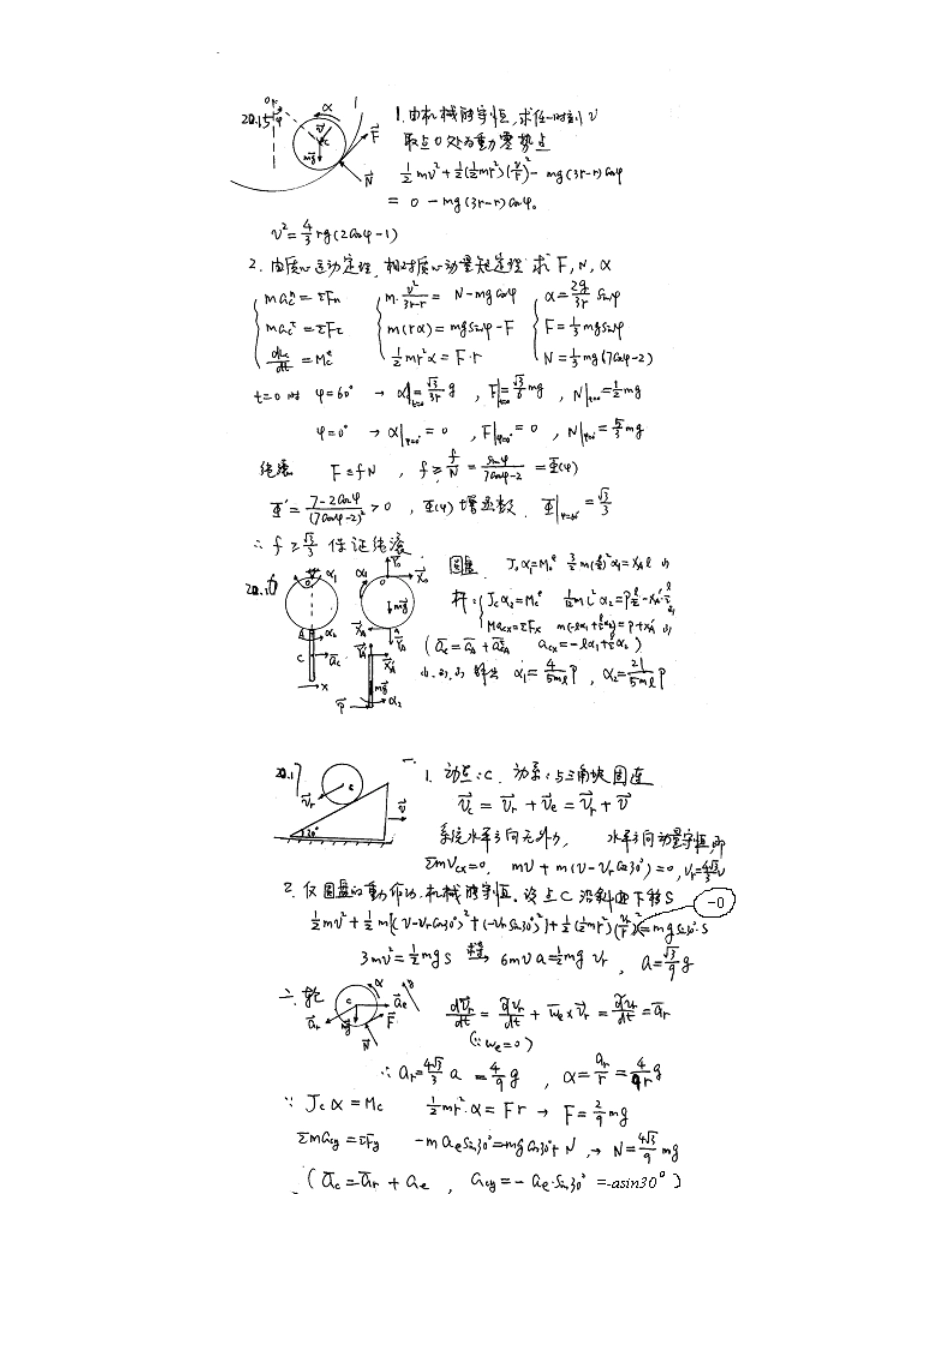 20.15
1.由机械能守恒,求任一时刻 v
取点O处为重力零势点
½mv²+½(½mr²)(v/r)²-mg(3r-r)cosφ
= 0 - mg(3r-r)cosφ₀
v²=4/3 rg(2cosφ-1)
2. 由质心运动定理,相对质心动量矩定理 求 F, N, α
maⁿc=ΣFn   m·v²/(3r-r) = N-mgcosφ   α=2g/3r sinφ
maτc=ΣFτ   m(rα)=mgsinφ-F   F=⅓mgsinφ
dLc/dt=Mcᵉ   ½mr²α=F·r   N=⅓mg(7cosφ-2)
t=0时 φ=60° → α|t=0=√3/3r g , F|t=0=√3/6 mg , N|t=0=½mg
φ=0° → α|φ=0°=0 , F|φ=0°=0 , N|φ=0°=5/3 mg
纯滚 F≤fN , f≥F/N=sinφ/(7cosφ-2)=Φ(φ)
Φ'=(7-2cosφ)/(7cosφ-2)²>0 , Φ(φ)增函数. Φ|φ=60°=√3/3
∴ f≥√3/3 保证纯滚
圆盘 J₀α₁=M₀ᵉ
杆: Jcα₂=Mcᵉ
Macx=ΣFx
(āc=āA+āτcA acx=-lα₁+l/2 α₂)
解出 α₁=4/5ml P , α₂=21/5ml P
20.17
一. 1. 动点:C. 动系:与三角块固连
v̄c = v̄r + v̄e = v̄r + v̄
系统水平方向无外力, 水平方向动量守恒,即
Σmvcx=0, mv+m(v-vrcos30°)=0, vr=4√3/3 v
2. 仅圆盘的重力作功.机械能守恒.设点C沿斜面下移S
½mv²+½m[(v-vrcos30°)²+(-vrsin30°)²]+½(½mr²)(vr/r)²-0=mgsin30°·S
3mv²=½mgs 求导 6mva=½mg vr , a=√3/9 g
二. 轮
dv̄r/dt = d̃v̄r/dt + ω̄e×v̄r = d̃v̄r/dt = ār
(∵ωe=0)
∴ ar=4√3/3 a = 4/9 g , α=ar/r=4/9r g
∵ Jcα=Mc ½mr²·α=Fr → F=2/9 mg
Σmacy=ΣFy -maesin30°=-mgcos30°+N , → N=4√3/9 mg
(āc=ār+āe , acy=-ae·sin30° =-asin30°)